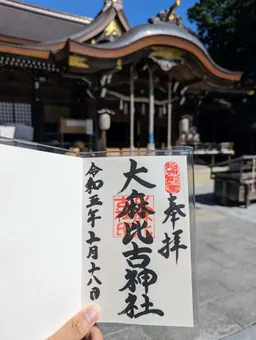 奉拝
大麻比古神社
令和五年十一月十八日